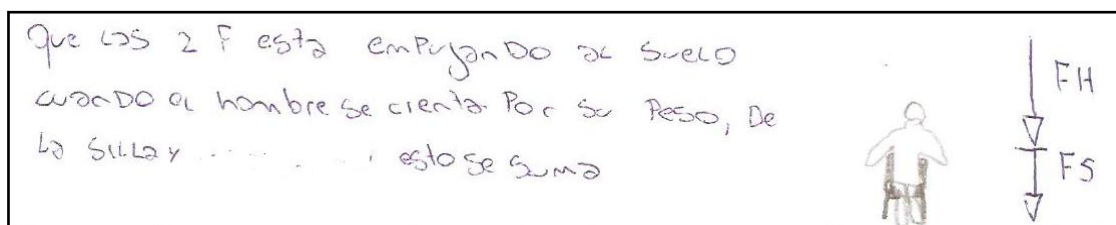 Que las 2 F esta empujando al suelo
cuando el hombre se cienta. Por su Peso, De
La SILLA y esto se suma
FH
FS